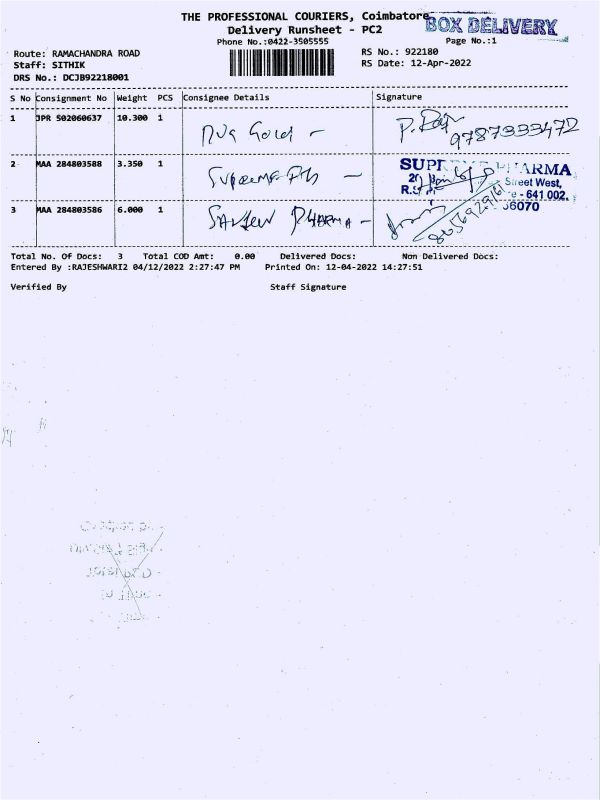 THE PROFESSIONAL COURIERS, Coimbatore
BOX DELIVERY
Delivery Runsheet - PC2
Phone No.:0422-3505555
Page No.:1
Route: RAMACHANDRA ROAD
RS No.: 922180
Staff: SITHIK
RS Date: 12-Apr-2022
DRS No.: DCJB92218001
S No Consignment No Weight PCS Consignee Details Signature
1 JPR 502060637 10.300 1 Gold - 9787333472
2 MAA 284803588 3.350 1 Supreme -
PHARMA
Street West,
641 002.
3 MAA 284803586 6.000 1 PHARMA - 8056929161
36070
Total No. Of Docs: 3 Total COD Amt: 0.00 Delivered Docs: Non Delivered Docs:
Entered By :RAJESHWARI2 04/12/2022 2:27:47 PM Printed On: 12-04-2022 14:27:51
Verified By Staff Signature